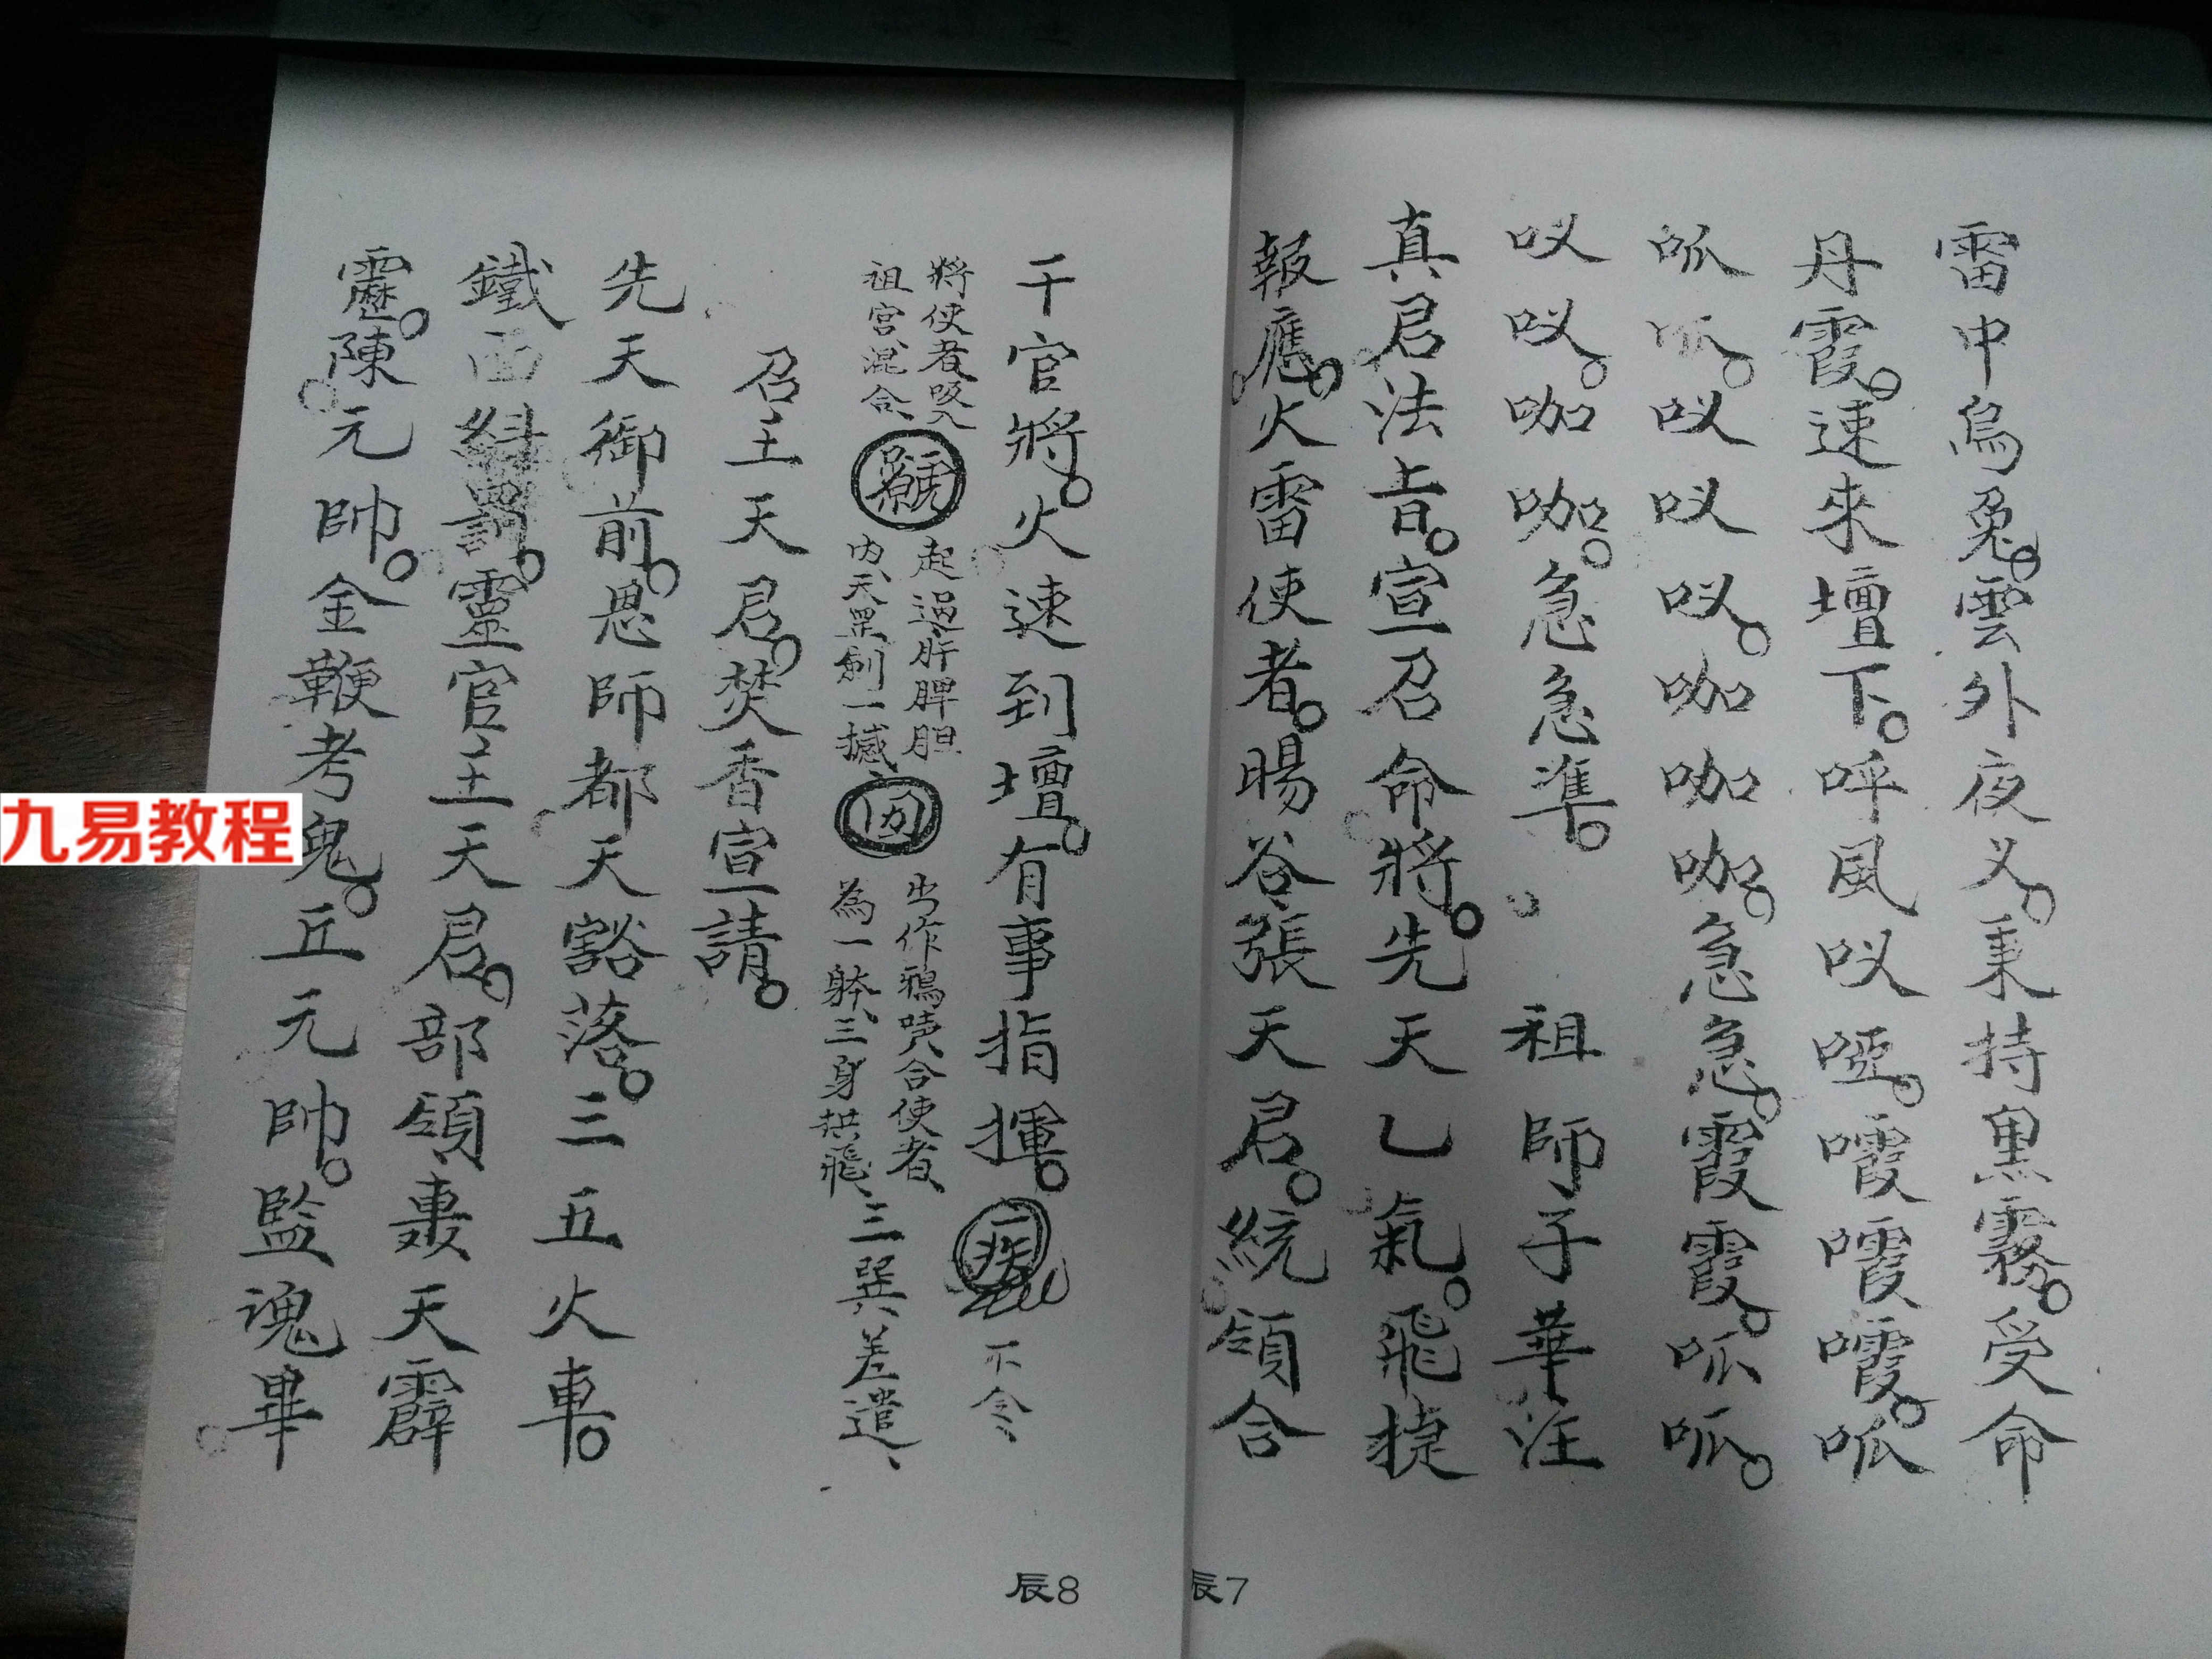 雷中烏兔雲外夜义秉持黑霧受命
丹霞速來壇下呼風㕥啞嘏嘏嘏呱
呱呱㕥㕥㕥咖咖咖急急霞霞呱呱
㕥㕥咖咖急急準 祖師子華汪
真君法旨宣召命將先天乙氣飛捷
報應火雷使者暘谷張天君統領合
辰7
千官將火速到壇有事指揮 不令
將使者吸入
祖宮混合
起過肝脾胆
内天罡劍一撼
出作鴉 合使者
為一躰三身拱飛三巽差遣
召王天君焚香宣請
先天御前恩師都天豁落三五火車
鐵面 罰靈官王天君部領轟天霹
靂陳元帥金鞭考鬼丘元帥監魂畢
辰8
九易教程